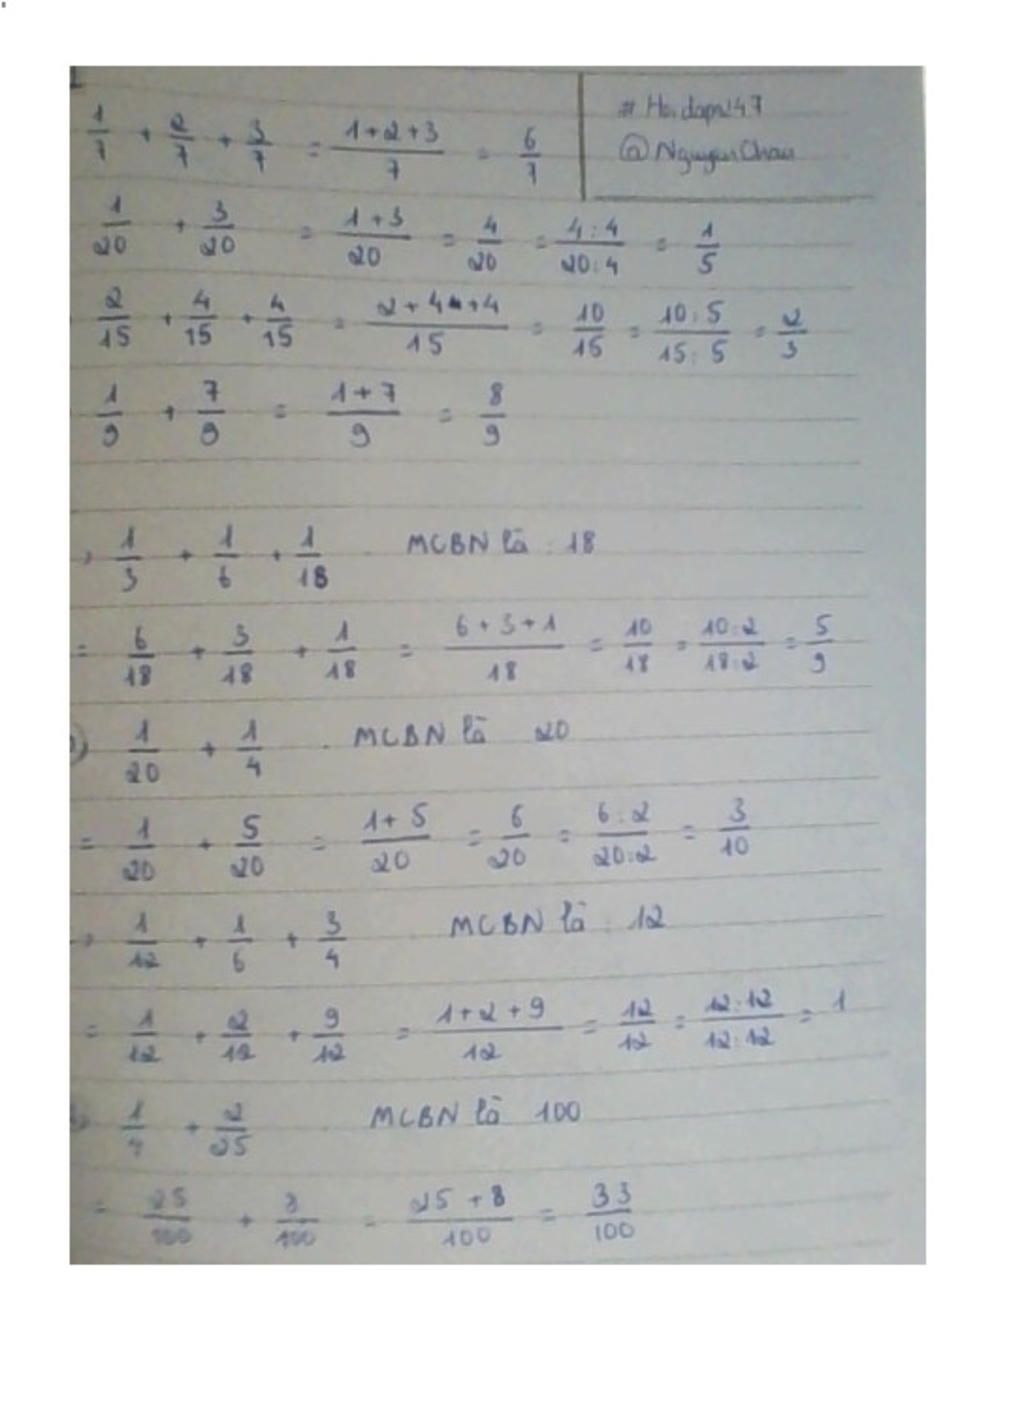 # Hoidap247
@NguyenChau
1/7 + 2/7 + 3/7 = (1+2+3)/7 = 6/7
1/20 + 3/20 = (1+3)/20 = 4/20 = (4:4)/(20:4) = 1/5
2/15 + 4/15 + 4/15 = (2+4+4)/15 = 10/15 = (10:5)/(15:5) = 2/3
1/9 + 7/9 = (1+7)/9 = 8/9
1/3 + 1/6 + 1/18 . MCBN là : 18
= 6/18 + 3/18 + 1/18 = (6+3+1)/18 = 10/18 = (10:2)/(18:2) = 5/9
1/20 + 1/4 . MCBN là 20
= 1/20 + 5/20 = (1+5)/20 = 6/20 = (6:2)/(20:2) = 3/10
1/12 + 1/6 + 3/4 . MCBN là : 12
= 1/12 + 2/12 + 9/12 = (1+2+9)/12 = 12/12 = (12:12)/(12:12) = 1
1/4 + 2/25 . MCBN là 100
= 25/100 + 8/100 = (25+8)/100 = 33/100